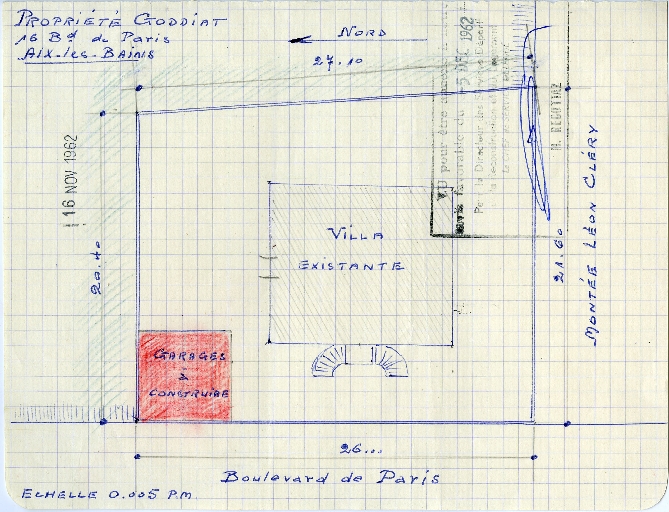 PROPRIÉTÉ GODDIAT
16 Bd de Paris
AIX-LES-BAINS
NORD
27.10
16 NOV 1962
VU pour être annexé à
favorable du 5 DEC 1962
Par le Directeur des Services Départ
la reconstruction
M. RECOTTAZ
20.40
VILLA
EXISTANTE
21.60
MONTÉE LÉON CLÉRY
GARAGES
à
CONSTRUIRE
26...
Boulevard de Paris
ECHELLE 0.005 P.M.